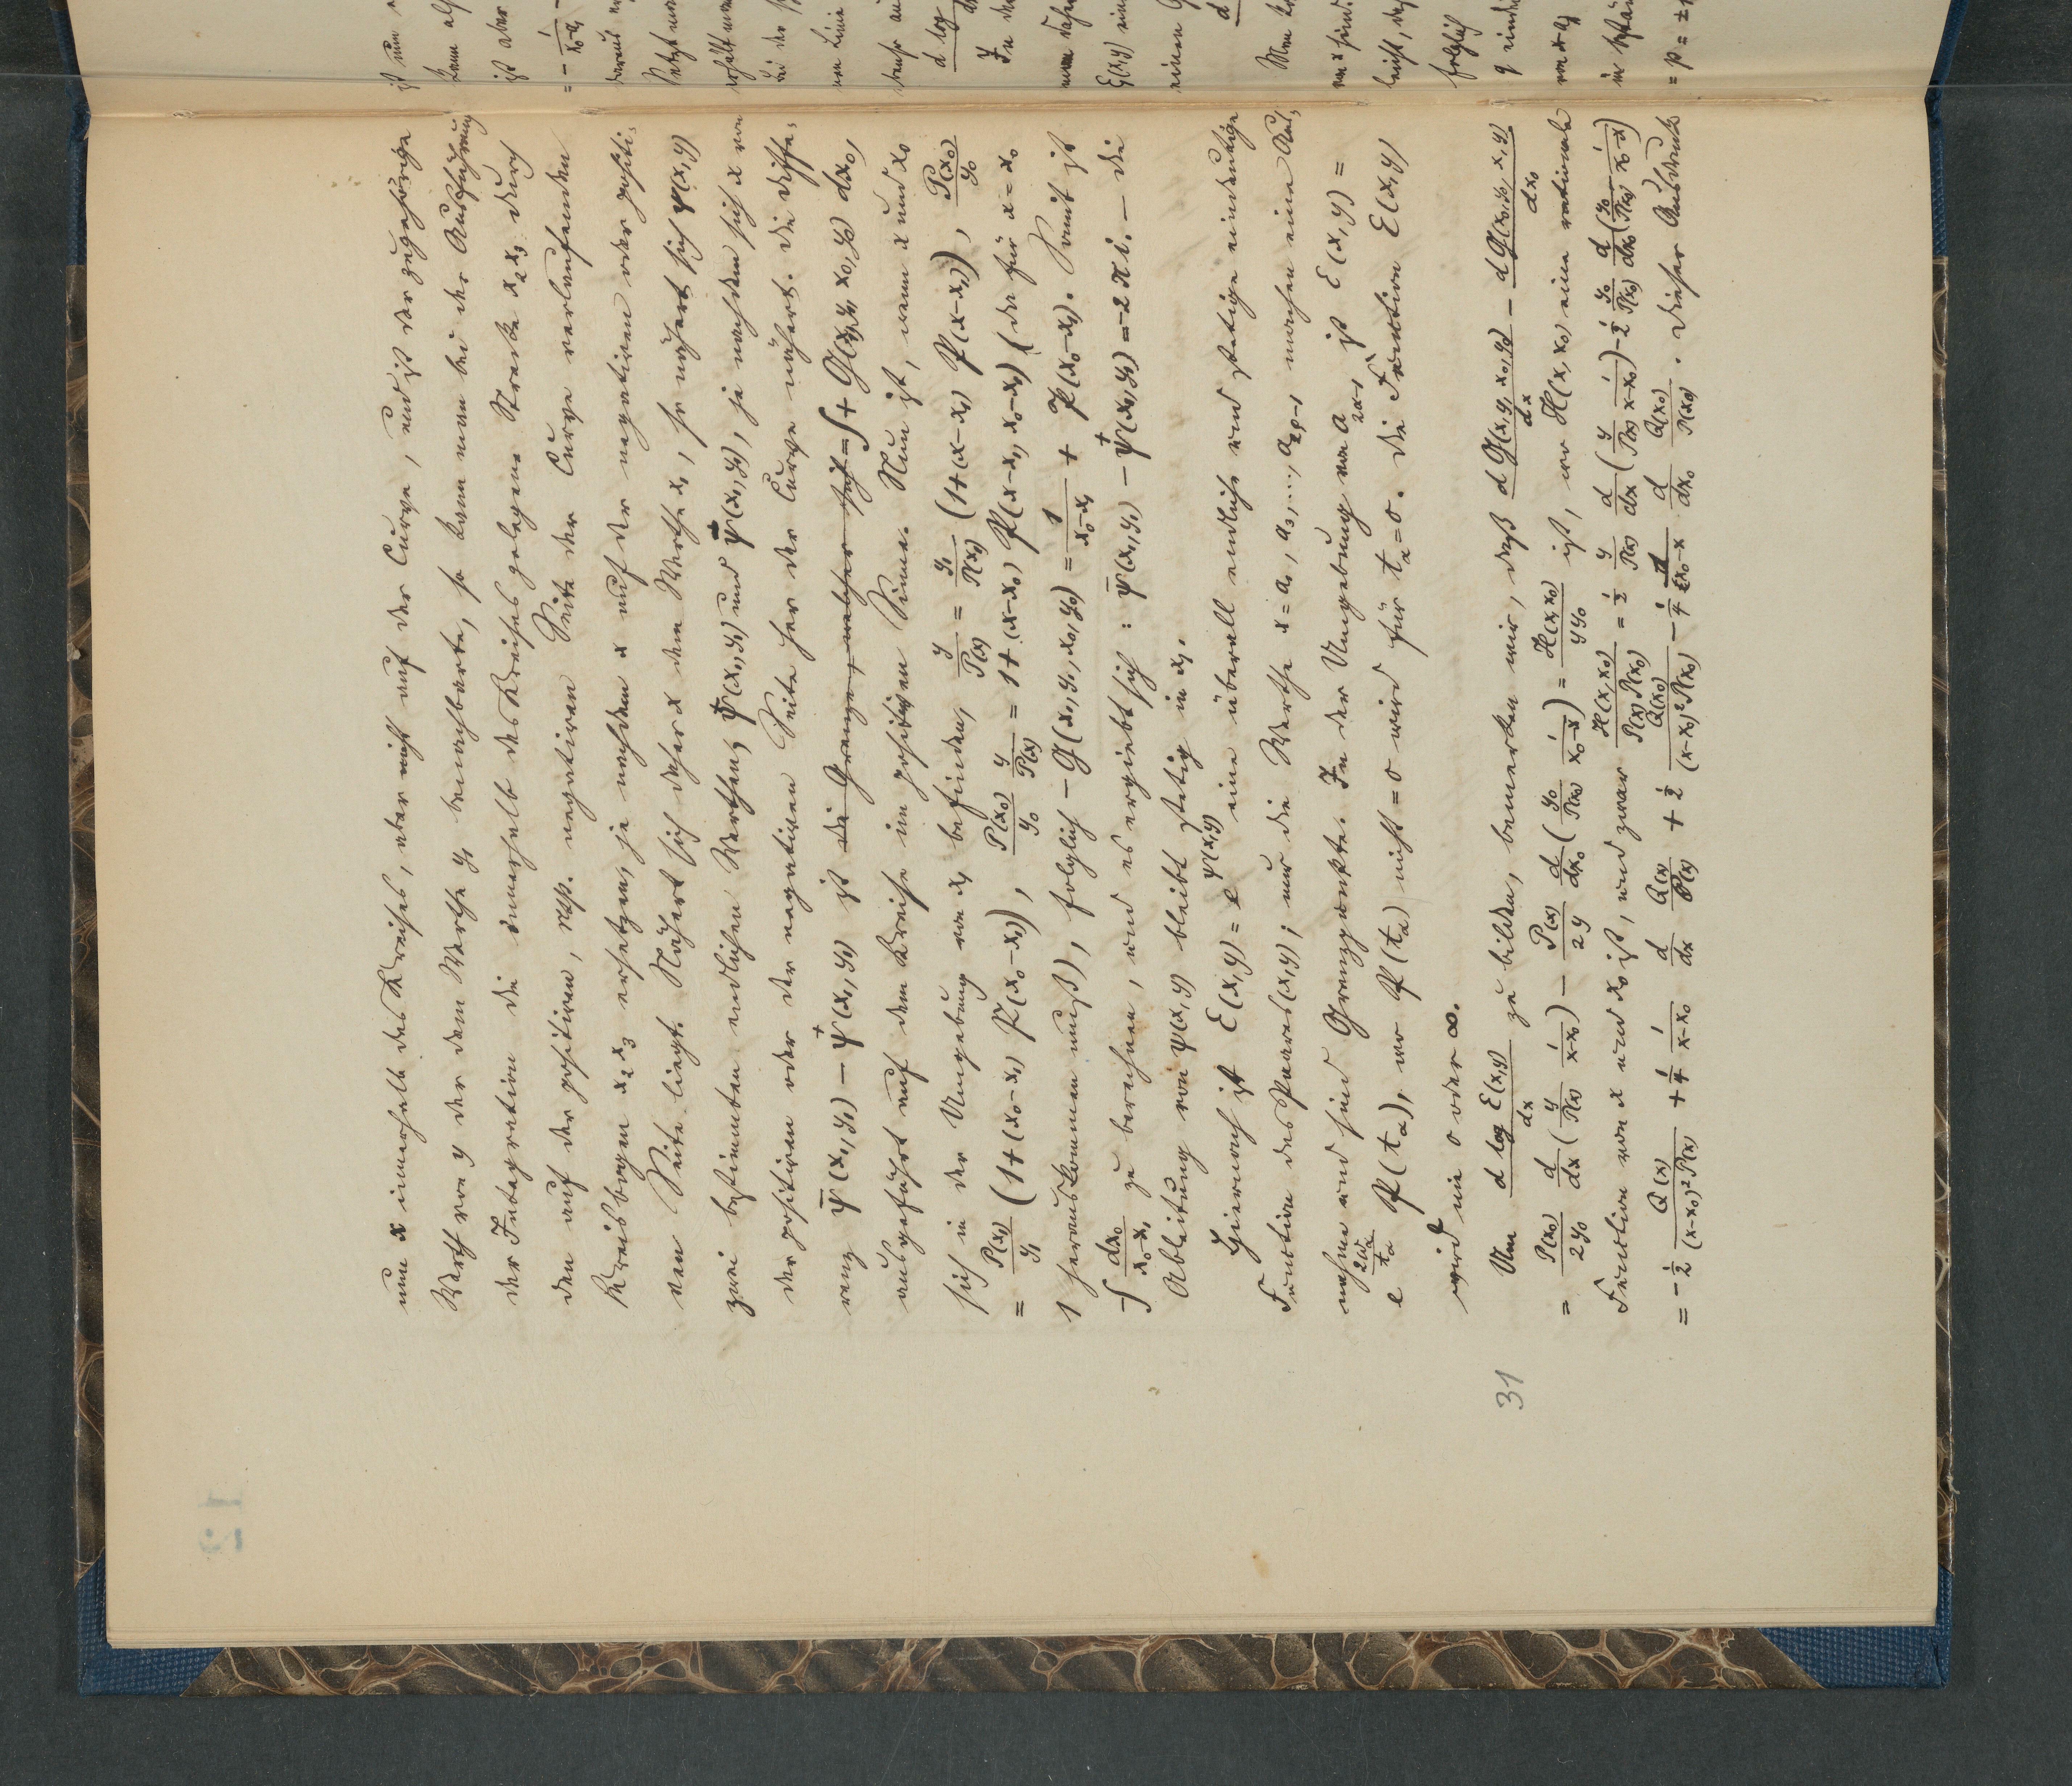 nun x innerhalb des Kreises, aber nicht auf der Curve, und ist der zugehörige
Werth von y der dem Werthe y₁ benachbarte, so kann man bei der Ausführung
der Integration die innerhalb des Kreises gelegene Strecke x₂x₃ durch
den auf der positiven, resp. negativen Seite der Curve verlaufenden
Kreisbogen x₂x₃ ersetzen, je nachdem x auf der negativen oder positi-
ven Seite liegt. Nähert sich daher x dem Werthe x₁, so nähert sich ψ(x,y)
zwei bestimmten endlichen Werthen, ψ⁺(x₁,y₁) und ψ⁻(x₁,y₁), je nachdem sich x von
der positiven oder der negativen Seite her der Curve nähert. Die Diffe-
renz ψ⁻(x₁,y₁) − ψ⁺(x₁,y₁) ist die Grenze, welcher sich = ∫⁺ G(x₁,y₁,x₀,y₀) dx₀,
ausgeführt auf dem Kreise im positiven Sinne. Nun ist, wenn x und x₀
sich in der Umgebung von x₁ befinden, y/P(x) = y₁/P(x₁) (1+(x−x₁) 𝔓(x−x₁)), P(x₀)/y₀
= P(x₁)/y₁ (1+(x₀−x₁) 𝔓(x₀−x₁)), P(x₀)/y₀ y/P(x) = 1+(x−x₀) 𝔓(x−x₁, x₀−x₁) (da für x=x₀
1 herauskommen muß), folglich − G(x₁,y₁,x₀,y₀) = 1/(x₀−x₁) + 𝔓(x₀−x₁). Somit ist
−∫ dx₀/(x₀−x₁) zu berechnen, und es ergiebt sich: ψ⁻(x₁,y₁) − ψ⁺(x₁,y₁) = −2πi. — Die
Ableitung von ψ(x,y) bleibt stetig in x₁.
Hiernach ist E(x,y) = e^ψ(x,y) eine überall endliche und stetige eindeutige
Function des Paares (x,y); nur die Werthe x = a₁, a₃, ..., a₂ρ₋₁ machen eine Aus-
nahme und sind Grenzpunkte. In der Umgebung von a₂α₋₁ ist E(x,y) =
e^(2ωα/tα) 𝔓(tα), wo 𝔓(tα) nicht = 0 wird für tα = 0. Die Function E(x,y)
wird nie 0 oder ∞.
31 Um d log E(x,y)/dx zu bilden, bemerken wir, daß dG(x,y,x₀,y₀)/dx − dG(x₀,y₀,x,y)/dx₀
= P(x₀)/2y₀ d/dx (y/P(x) 1/(x−x₀)) − P(x)/2y d/dx₀ (y₀/P(x₀) 1/(x₀−x)) = H(x,x₀)/yy₀ ist, wo H(x,x₀) eine rationale
Function von x und x₀ ist, und zwar H(x,x₀)/P(x)P(x₀) = ½ y/P(x) d/dx (y/P(x) 1/(x−x₀)) − ½ y₀/P(x₀) d/dx₀ (y₀/P(x₀) 1/(x₀−x))
= −½ Q(x)/(x−x₀)²P(x) + ¼ 1/(x−x₀) d/dx Q(x)/P(x) + ½ Q(x₀)/(x−x₀)²P(x₀) − ¼ 1/(x₀−x) d/dx₀ Q(x₀)/P(x₀). Dieser Ausdruck